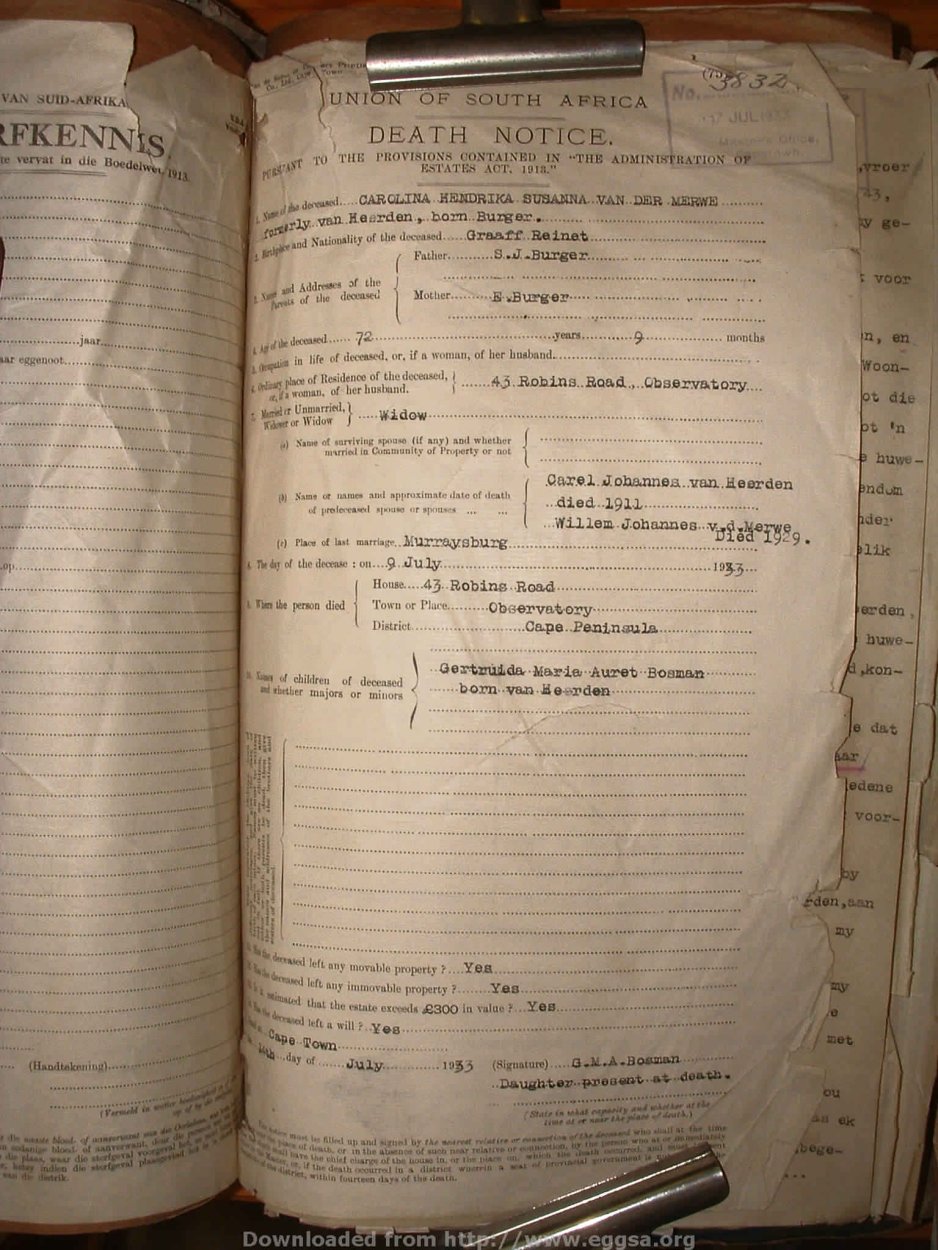 VAN SUID-AFRIKA
RFKENNIS.
vervat in die Boedelwet, 1913.
jaar
eggenoot
op
(Handtekening)
UNION OF SOUTH AFRICA
No. 3832
17 JUL 1933
DEATH NOTICE.
PURSUANT TO THE PROVISIONS CONTAINED IN "THE ADMINISTRATION OF
ESTATES ACT, 1913."
1. Name of the deceased CAROLINA HENDRIKA SUSANNA VAN DER MERWE
formerly van Heerden, born Burger.
2. Birthplace and Nationality of the deceased Graaff Reinet
Father S.J.Burger
3. Names and Addresses of the
Parents of the deceased
Mother E.Burger
4. Age of the deceased 72 years 9 months
5. Occupation in life of deceased, or, if a woman, of her husband
6. Ordinary place of Residence of the deceased,
or, if a woman, of her husband.
43 Robins Road, Observatory
7. Married or Unmarried,
Widower or Widow
Widow
(a) Name of surviving spouse (if any) and whether
married in Community of Property or not
(b) Name or names and approximate date of death
of predeceased spouse or spouses
Carel Johannes van Heerden
died 1911
Willem Johannes v.d.Merwe
Died 1929.
(c) Place of last marriage Murraysburg
8. The day of the decease : on 9 July 1933
9. Where the person died
House 43 Robins Road
Town or Place Observatory
District Cape Peninsula
10. Names of children of deceased
and whether majors or minors
Gertruida Maria Auret Bosman
born van Heerden
Has the deceased left any movable property ? Yes
Has the deceased left any immovable property ? Yes
Is it estimated that the estate exceeds £300 in value ? Yes
Has the deceased left a will ? Yes
Cape Town
14th day of July 1933
(Signature) G.M.A.Bosman
Daughter present at death.
(State in what capacity and whether at the
time at or near the place of death.)
must be filled up and signed by the nearest relative or connection of the deceased who shall at the time
place of death, or in the absence of such near relative or connection, by the person who at or immediately
shall have the chief charge of the house in, or the place on, which the death occurred, and must
if the death occurred in a district wherein a seat of provincial government is
the district, within fourteen days of the death.
vroer
43,
y ge-
voor
n, en
Woon-
ot die
ot 'n
huwe-
endom
nder
lik
erden,
huwe-
d,kon-
e dat
aar
ledene
voor-
by
rden,aan
my
my
e
met
ou
an ek
bege-
Downloaded from http://www.eggsa.org